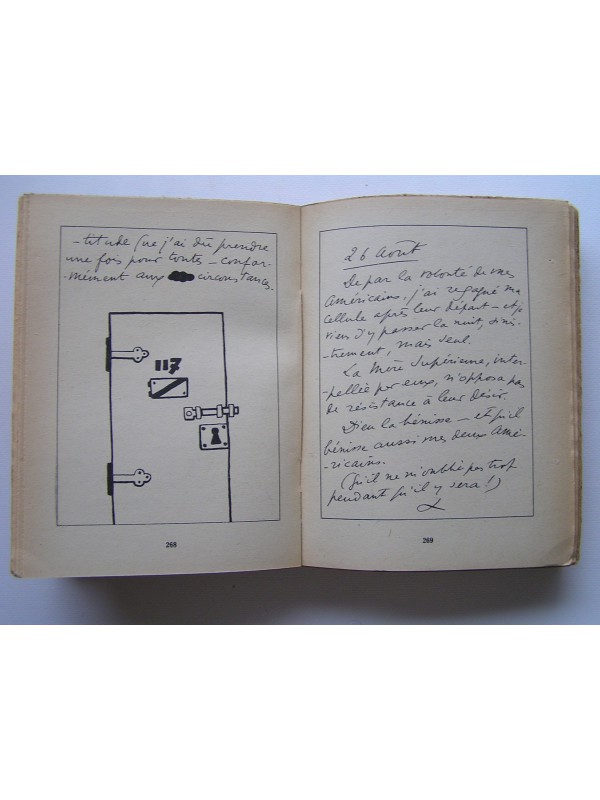 -titude que j'ai dû prendre
une fois pour toutes – confor-
-mément aux circonstances.
117
268
26 Août
De par la volonté de mes
Américains, j'ai regagné ma
cellule après leur départ – et je
viens d'y passer la nuit, sinis-
-trement, mais seul.
La Mère Supérieure, inter-
-pellée par eux, n'opposa pas
de résistance à leur désir.
Dieu la bénisse – et qu'il
bénisse aussi mes deux Amé-
-ricains.
(Qu'il ne m'oublie pas trop
pendant qu'il y sera !)
269